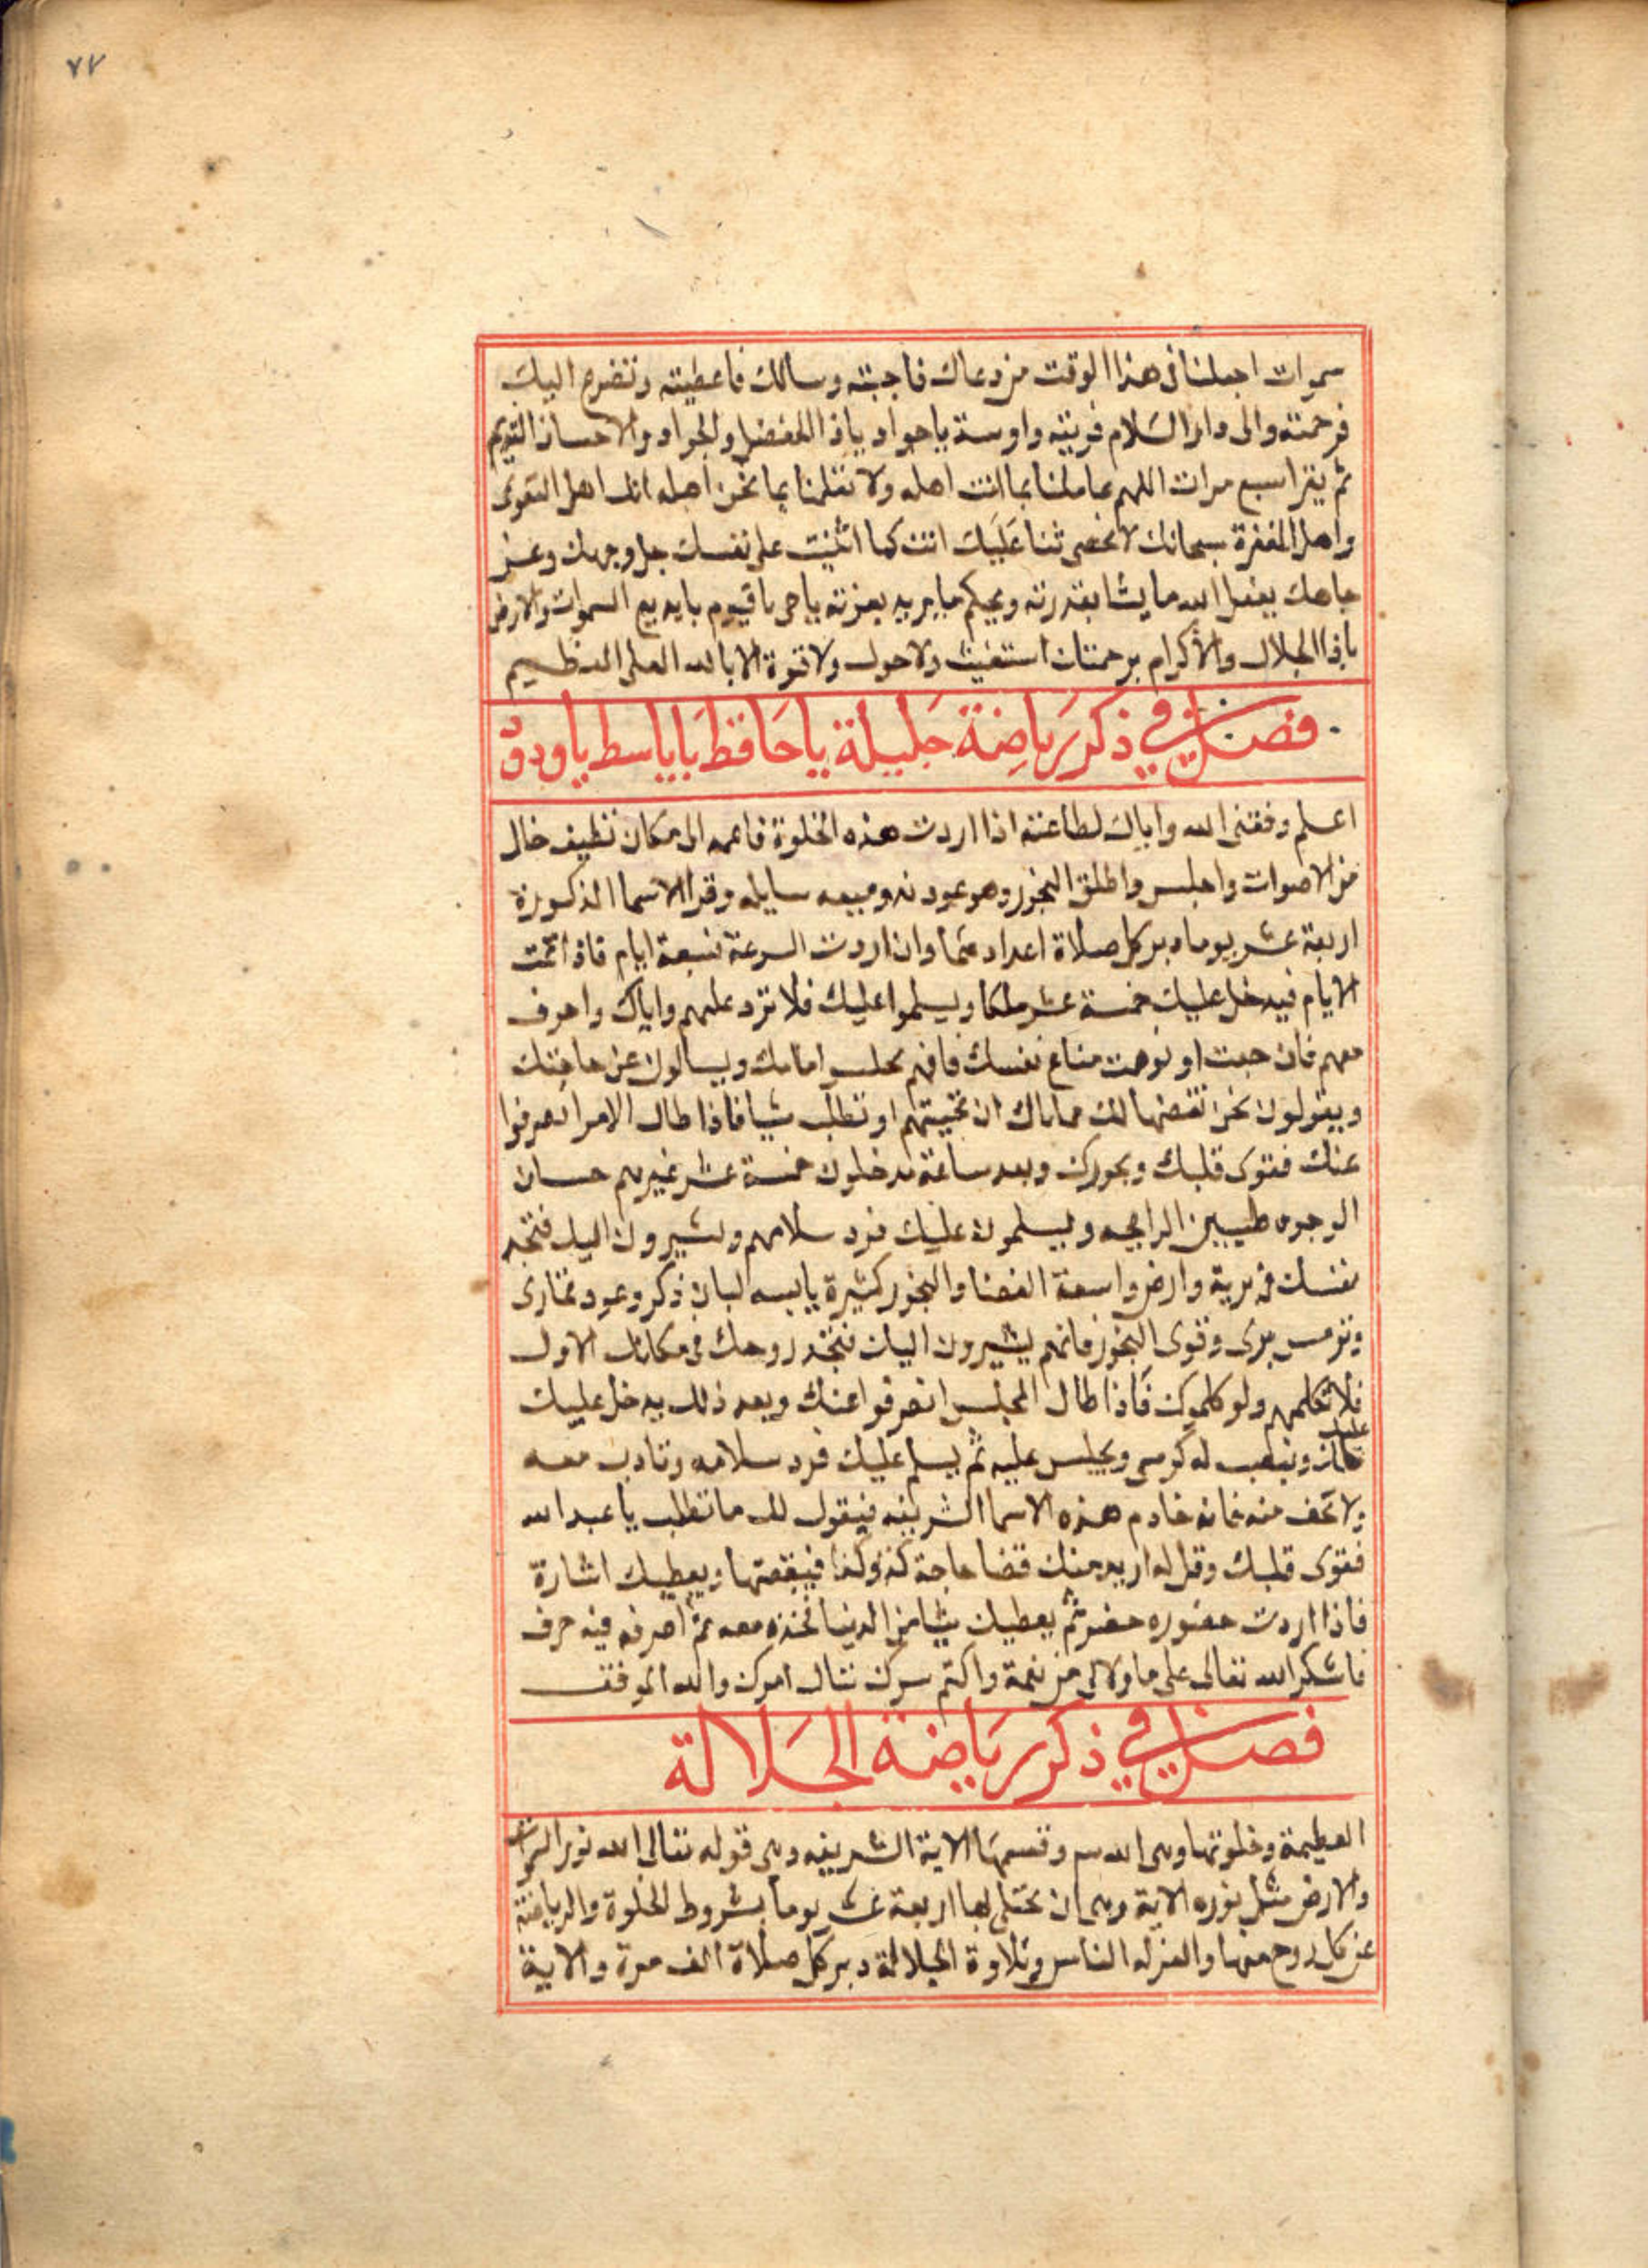 ٧٧
سموات اجعلنا فى هذا الوقت من دعاك فاجبته وسالك فاعطيته وتضرع اليك
فرحمته والى دار السلام قربته يا جواد ياذا الفضل والجواد والاحسان القديم
ثم يقرا سبع مرات اللهم عاملنا بما انت اهله ولا تعاملنا بما نحن اهله انك اهل التقوى
واهل المغفرة سبحانك لا نحصى ثنا عليك انت كما اثنيت على نفسك جل وجهك وعز
جاهك يفعل الله ما يشا بقدرته ويحكم ما يريد بعزته ياحى ياقيوم يابديع السموات والارض
ياذا الجلال والاكرام برحمتك استغيث ولا حول ولا قوة الا بالله العلى العظيم
فصل في ذكر رياضة جليلة يا حافظ يا باسط يا ودود
اعلم وفقنى الله واياك لطاعته اذا اردت هذه الخلوة فاعمد الى مكان نظيف خال
من الاصوات واجلس واطلق البخور وهو عود ند وميعه سايله وقرا الاسما المذكورة
اربعة عشر يوما دبر كل صلاة اعدادهما وان اردت السرعة فسبعة ايام فاذا تمت
الايام فيدخل عليك خمسة عشر ملكا ويسلموا عليك فلا ترد عليهم واياك واحرف
معهم فان جبت او نوهت ضاع نفسك فانهم يجلسوا امامك ويسالون عن حاجتك
ويقولون نحن نقضها لك فاياك ان تجيبهم او تطلب شيا فاذا طال الامر انصرفوا
عنك فقوى قلبك وبخورك وبعد ساعة يدخلون خمسة عشر غيرهم حسان
الوجوه طيبين الرايحه ويسلمون عليك فرد سلامهم ويشيرون اليك فتجد
نفسك فى برية وارض واسعة الفضا والبخور كثيرة يابسه لبان ذكر وعود قمارى
وترمس برى وقوى البخور فانهم يشيرون اليك فتجد روحك فى مكانك الاول
فلا تكلمهم ولو كلموك فاذا طال المجلس انصرفوا عنك وبعد ذلك يدخل عليك
ملك وينصب له كرسى ويجلس عليه ثم يسلم عليك فرد سلامه وتادب معه
ولا تخف منه فانه خادم هذه الاسما الشريفه فيقول لك ما تطلب يا عبد الله
فقوى قلبك وقل له اريد منك قضا حاجة كذا وكذا فيقضها ويعطيك اشارة
فاذا اردت حضوره حضر ثم يعطيك شيا من الدنيا فخذه معه ثم اصرفه فينصرف
فاشكر الله تعالى على ما اولاك من نعمة واكتم سرك تنال امرك والله الموفق
فصل في ذكر رياضة الجلالة
العظيمة وخلوتها وهى الله وقسمها الاية الشريفه وهى قوله تعالى الله نور السموات
والارض مثل نوره الاية وهى ان تختلى لها اربعة عشر يوما بشروط الخلوة والرياضة
عن كل روح معها والعزله الناس وتلاوة الجلالة دبر كل صلاة الف مرة والاية